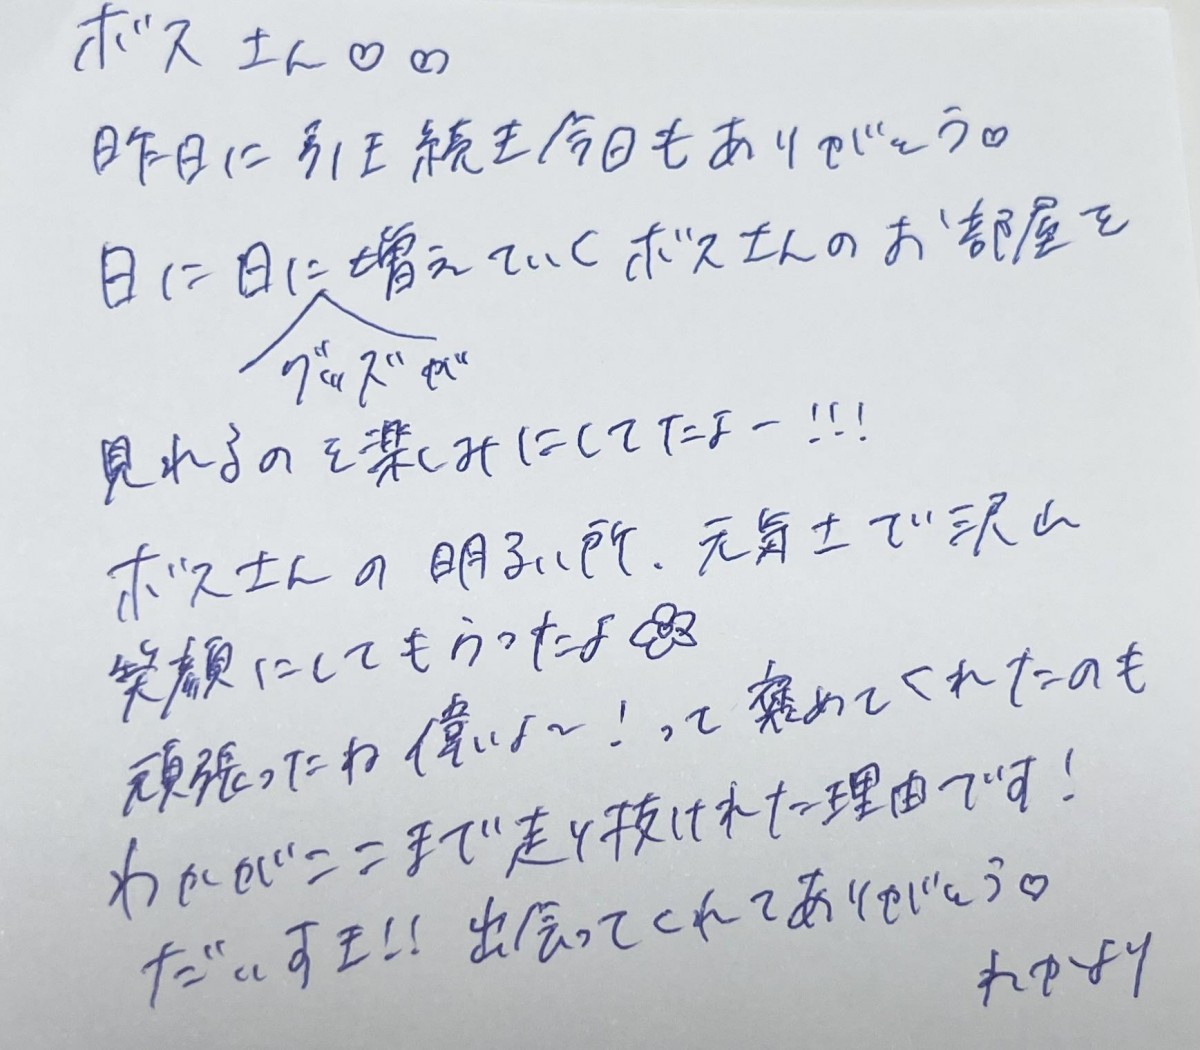 ボスさん♡♡
昨日に引き続き今日もありがとう♡
日に日に増えていくボスさんのお部屋を
グッズが
見れるのを楽しみにしてたよー!!!
ボスさんの明るい所、元気さで沢山
笑顔にしてもらったよ
頑張ったね偉いよ〜!って褒めてくれたのも
わかがここまで走り抜けれた理由です!
だいすき!!出会ってくれてありがとう♡
わかより